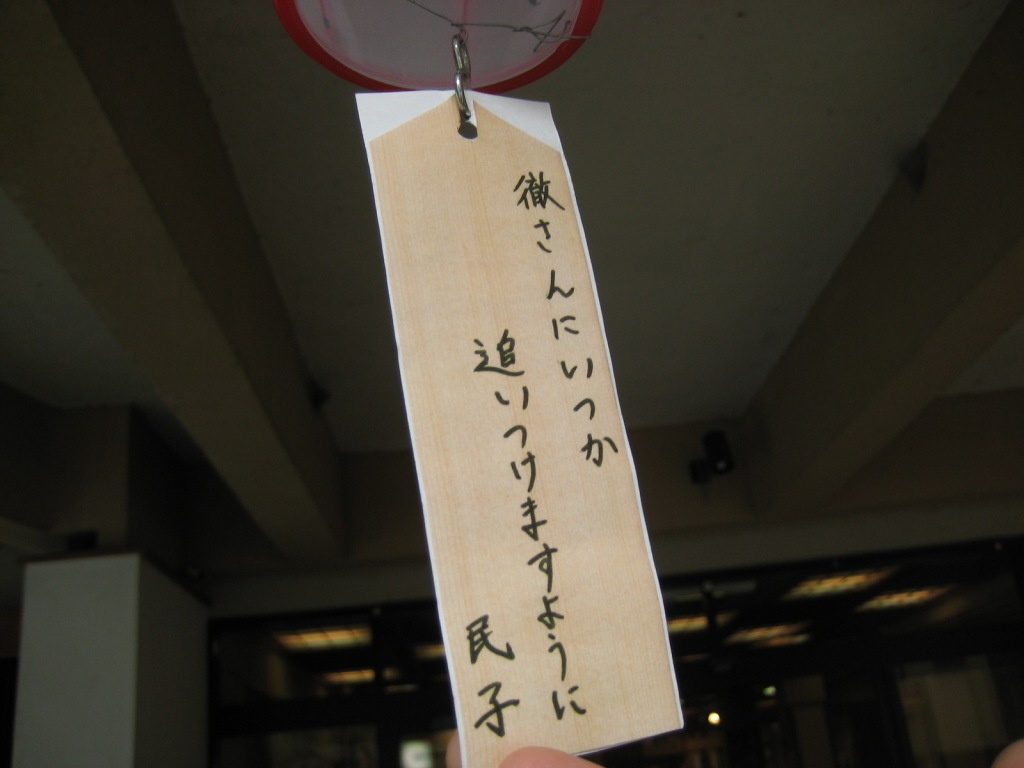 徹さんにいつか
追いつけますように
民子